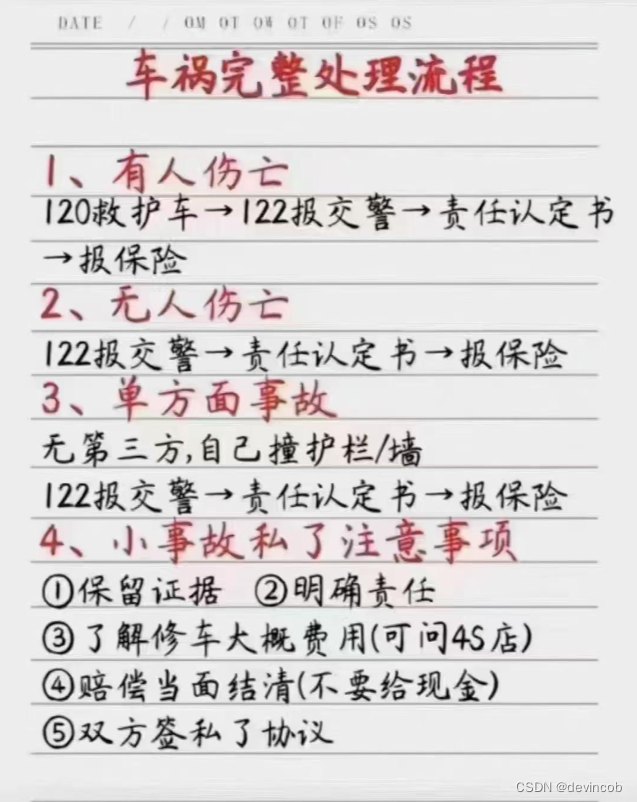 DATE / / OM OT OW OT OF OS OS
车祸完整处理流程
1、有人伤亡
120救护车→122报交警→责任认定书
→报保险
2、无人伤亡
122报交警→责任认定书→报保险
3、单方面事故
无第三方,自己撞护栏/墙
122报交警→责任认定书→报保险
4、小事故私了注意事项
①保留证据 ②明确责任
③了解修车大概费用(可问4S店)
④赔偿当面结清(不要给现金)
⑤双方签私了协议
CSDN @devincob